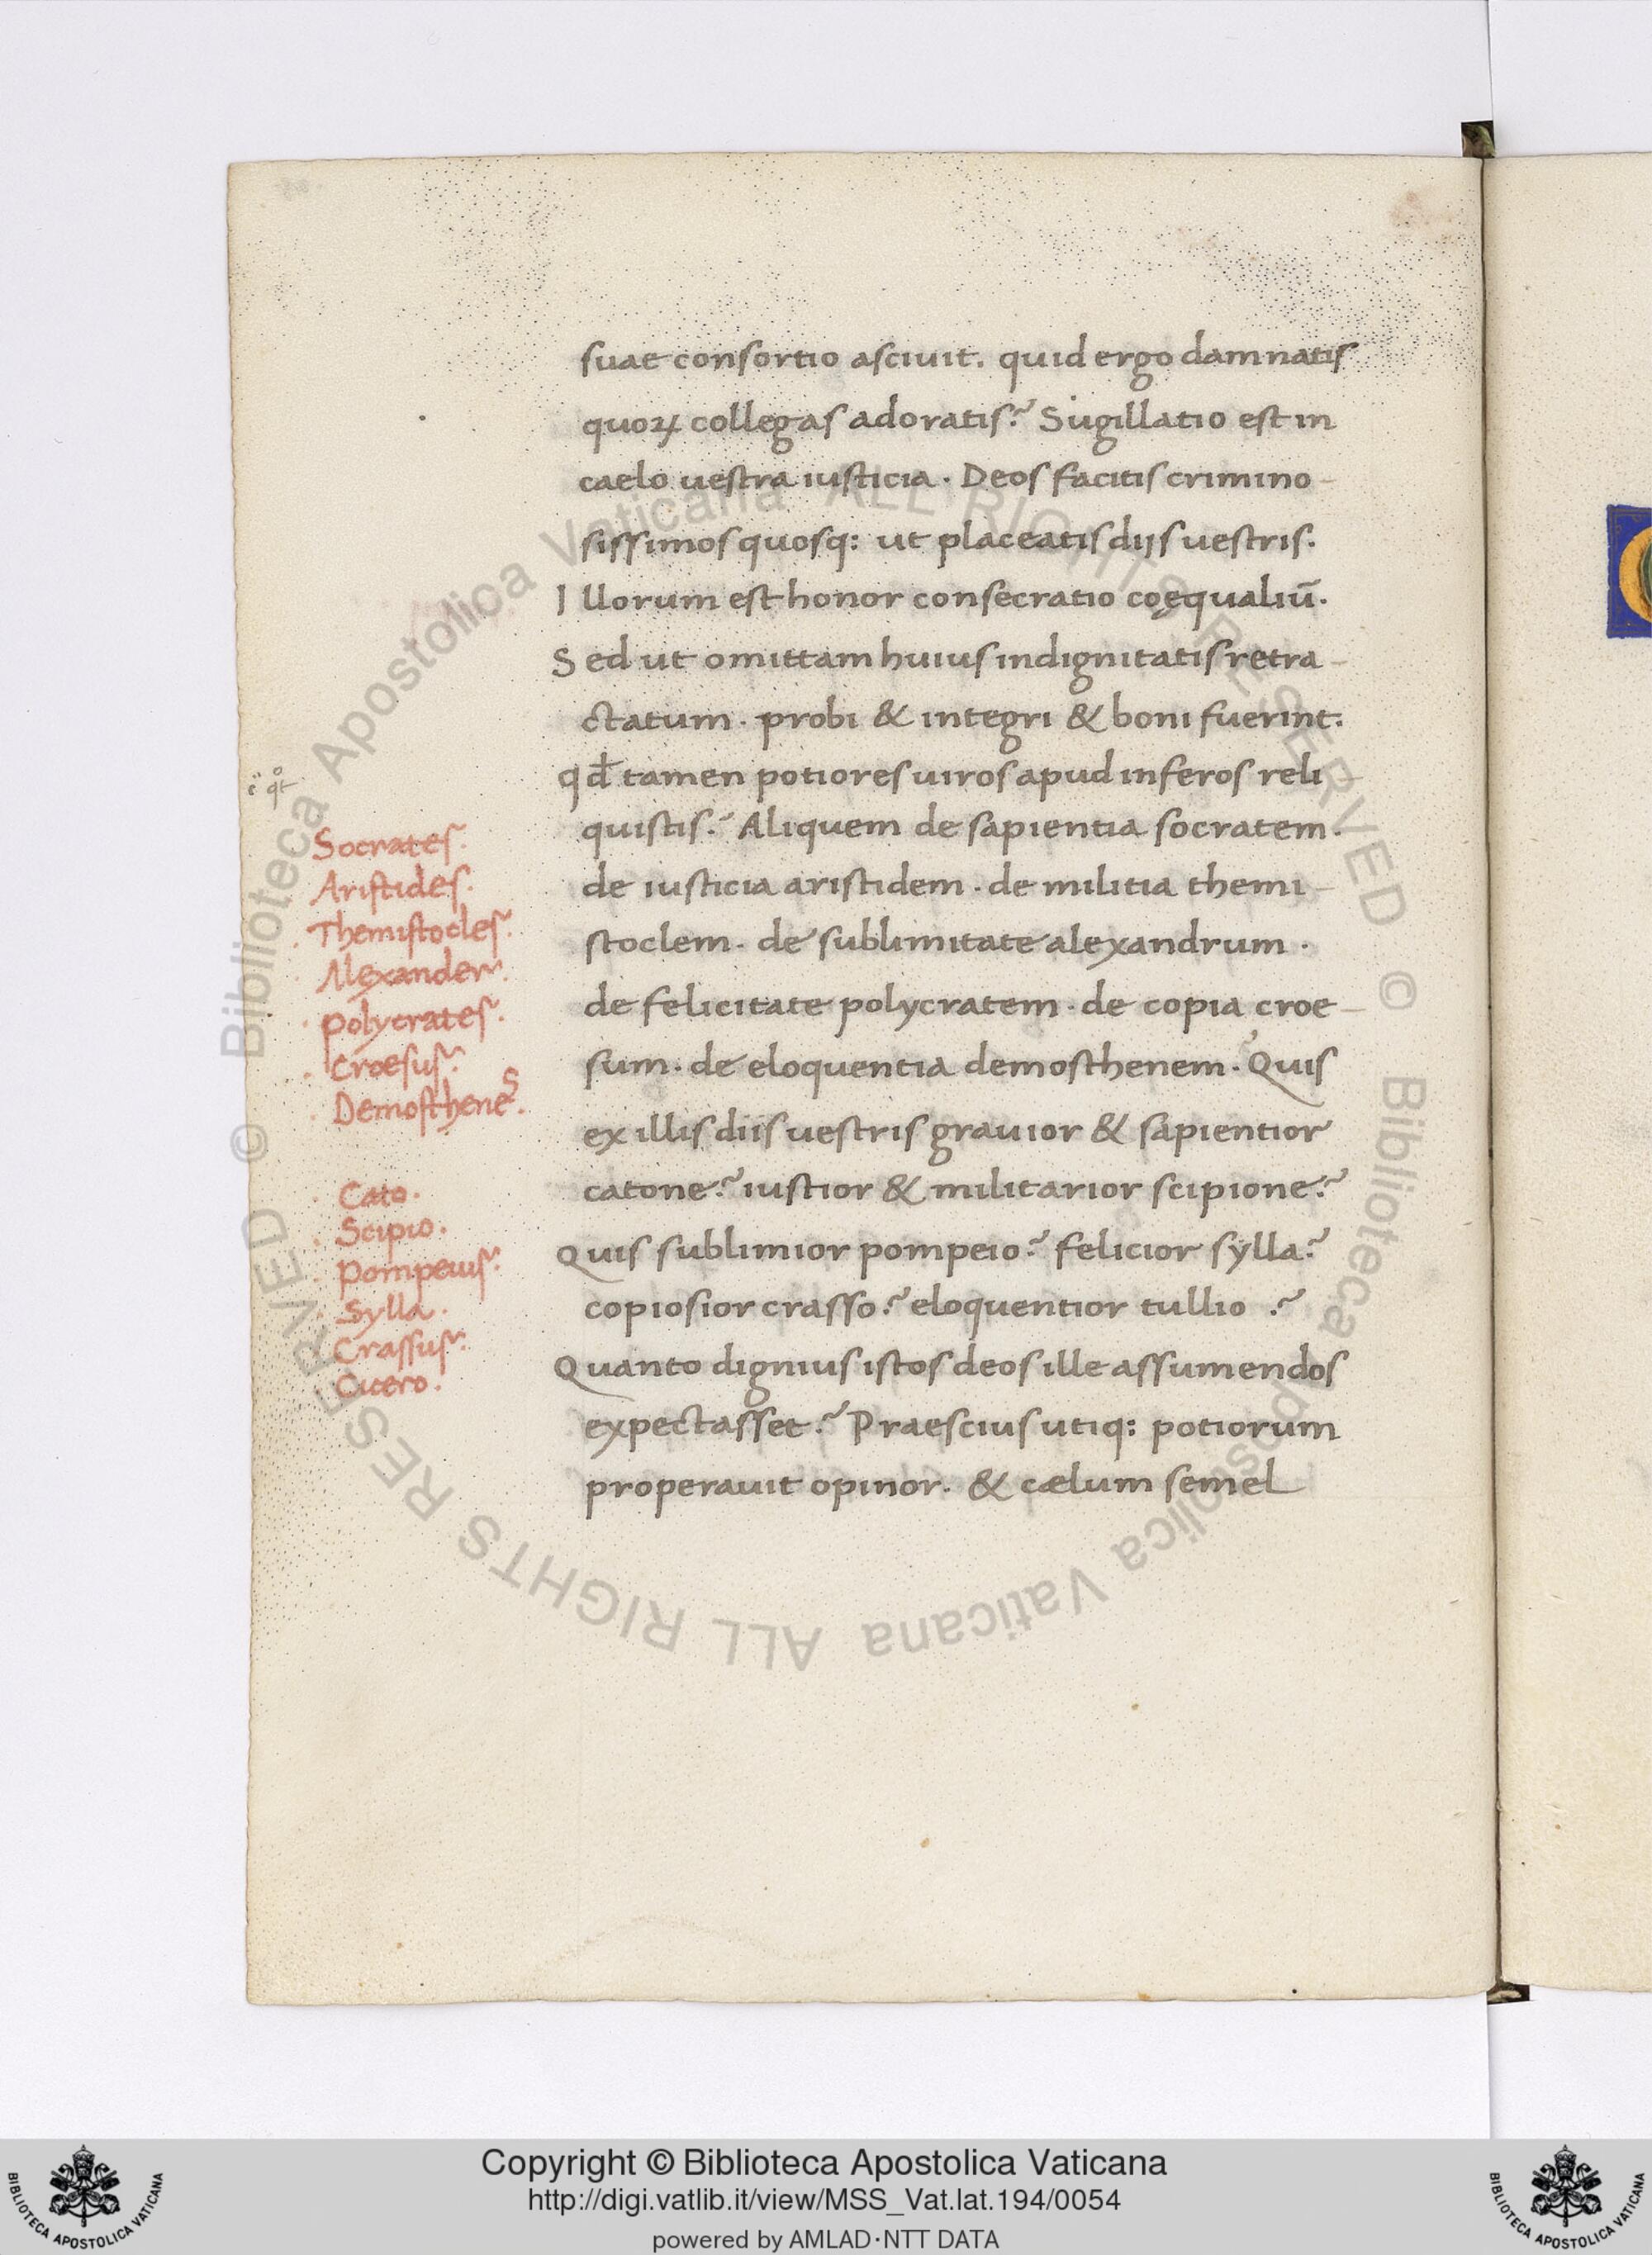 suae consortio asciuit. quid ergo damnatis
quoꝝ collegas adoratis? Sugillatio est in
caelo uestra iusticia. Deos facitis crimino-
sissimos quosq: ut placeatis diis uestris.
Illorum est honor consecratio coęqualiū.
Sed ut omittam huius indignitatis retra-
ctatum. probi & integri & boni fuerint.
qđ tamen potiores uiros apud inferos reli-
quistis? Aliquem de sapientia socratem.
de iusticia aristidem. de militia themi-
stoclem. de sublimitate alexandrum.
de felicitate polycratem. de copia croe-
sum. de eloquentia demosthenem. Quis
ex illis diis uestris grauior & sapientior
catone? iustior & militarior scipione?
Quis sublimior pompeio? felicior sylla?
copiosior crasso? eloquentior tullio?
Quanto dignius istos deos ille assumendos
expectasset? Praescius utiq: potiorum
properauit opinor. & cælum semel
Socrates.
Aristides.
Themistocles.
Alexander.
polycrates.
Croesus.
Demosthenes.
Cato.
Scipio.
Pompeius.
Sylla.
Crassus.
Cicero.
© Biblioteca Apostolica Vaticana ALL RIGHTS RESERVED © Biblioteca Apostolica Vaticana ALL RIGHTS RESERVED
Copyright © Biblioteca Apostolica Vaticana
http://digi.vatlib.it/view/MSS_Vat.lat.194/0054
powered by AMLAD·NTT DATA
BIBLIOTECA APOSTOLICA VATICANA
BIBLIOTECA APOSTOLICA VATICANA